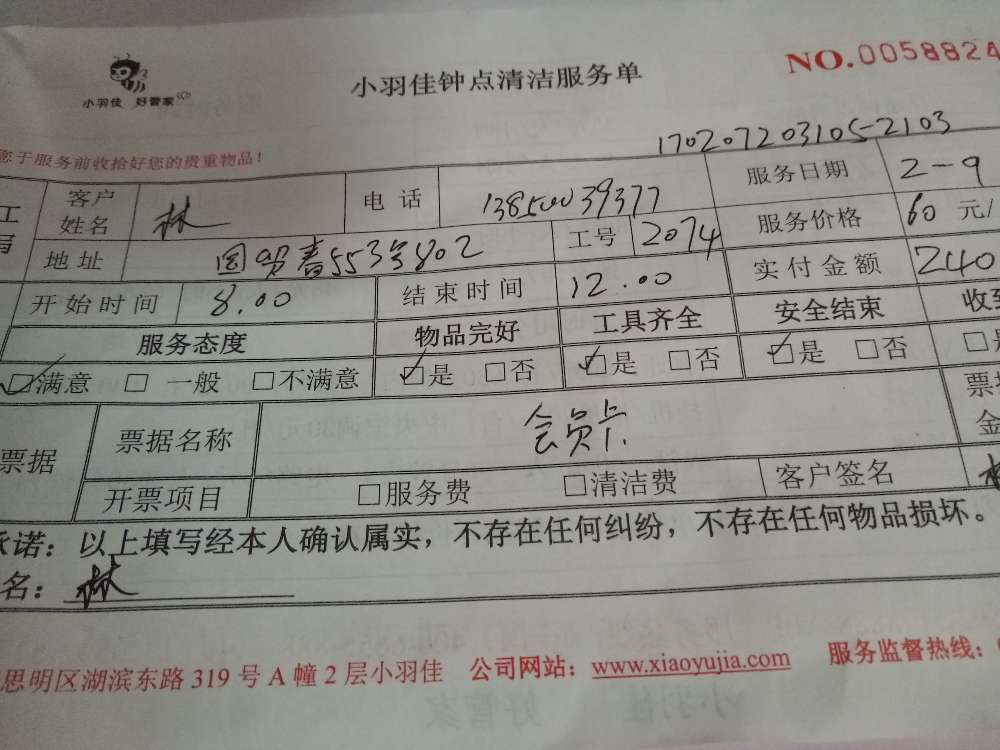 小羽佳 好管家
小羽佳钟点清洁服务单
NO.0058824
您于服务前收拾好您的贵重物品！
170207203105-2103
客户姓名 林 电话 13850039377 服务日期 2-9
地址 553号802 工号 2074 服务价格 60元/
开始时间 8.00 结束时间 12.00 实付金额 240
服务态度 物品完好 工具齐全 安全结束 收到
☑满意 □一般 □不满意 ☑是 □否 ☑是 □否 ☑是 □否 □是
票据 票据名称 会员卡 票据金
开票项目 □服务费 □清洁费 客户签名 林
承诺：以上填写经本人确认属实，不存在任何纠纷，不存在任何物品损坏。
名：林
思明区湖滨东路 319 号 A 幢 2 层小羽佳 公司网站：www.xiaoyujia.com 服务监督热线：